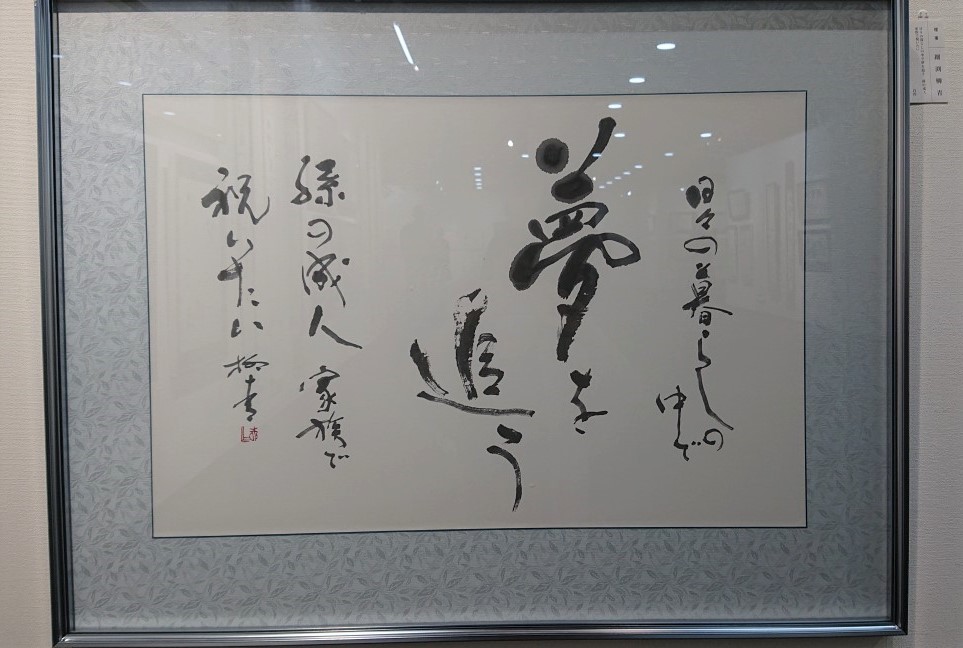 日々の暮らしの
中で
夢を
追う
孫の成人 家族で
祝いたい 柳青